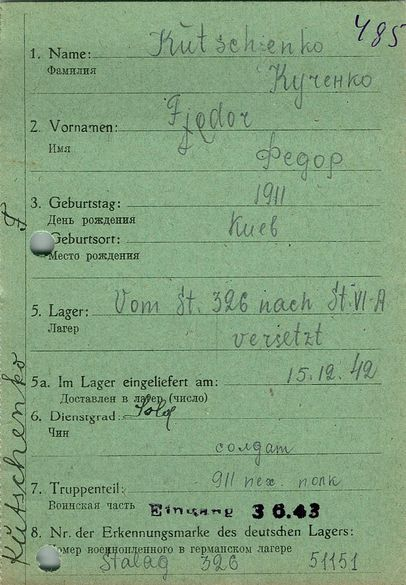 485
1. Name: Kutschenko
Фамилия
Кученко
2. Vornamen: Fjodor
Имя
Федор
3. Geburtstag: 1911
День рождения
Geburtsort: Киев
Место рождения
5. Lager: Vom St. 326 nach St. VI-A
Лагер
versetzt
5a. Im Lager eingeliefert am: 15.12.42
Доставлен в лагер (число)
6. Dienstgrad: Sold
Чин
солдат
7. Truppenteil: 911 пех. полк
Воинская часть Eingang 3 6.43
8. Nr. der Erkennungsmarke des deutschen Lagers:
номер военнопленного в германском лагере
Stalag 326 51151
Kutschenko F